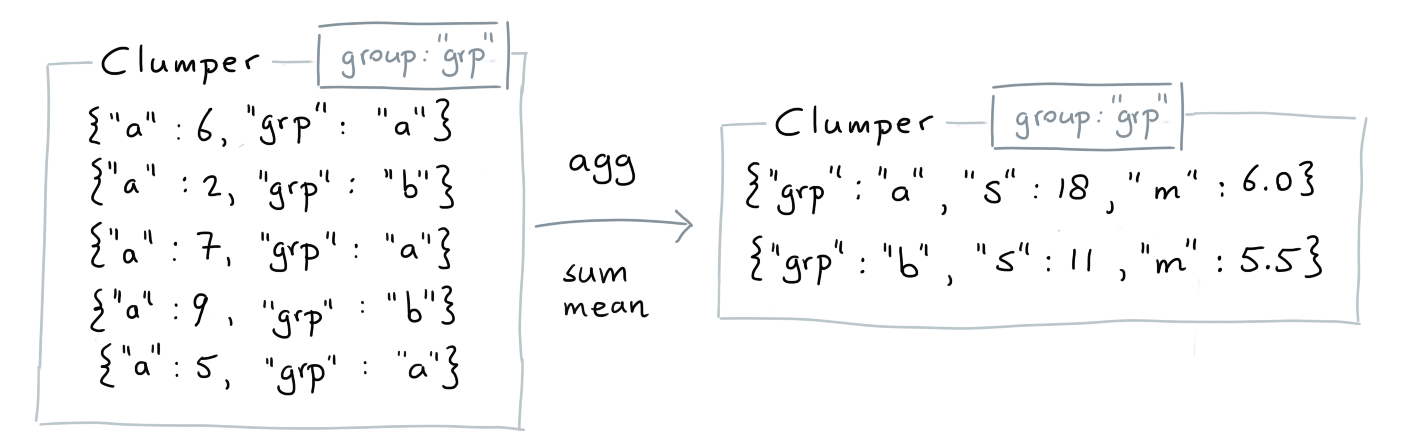 Clumper group: "grp"
{"a" : 6, "grp" : "a"}
{"a" : 2, "grp" : "b"}
{"a" : 7, "grp" : "a"}
{"a" : 9, "grp" : "b"}
{"a" : 5, "grp" : "a"}
agg
sum
mean
Clumper group: "grp"
{"grp" : "a", "s" : 18, "m" : 6.0}
{"grp" : "b", "s" : 11, "m" : 5.5}